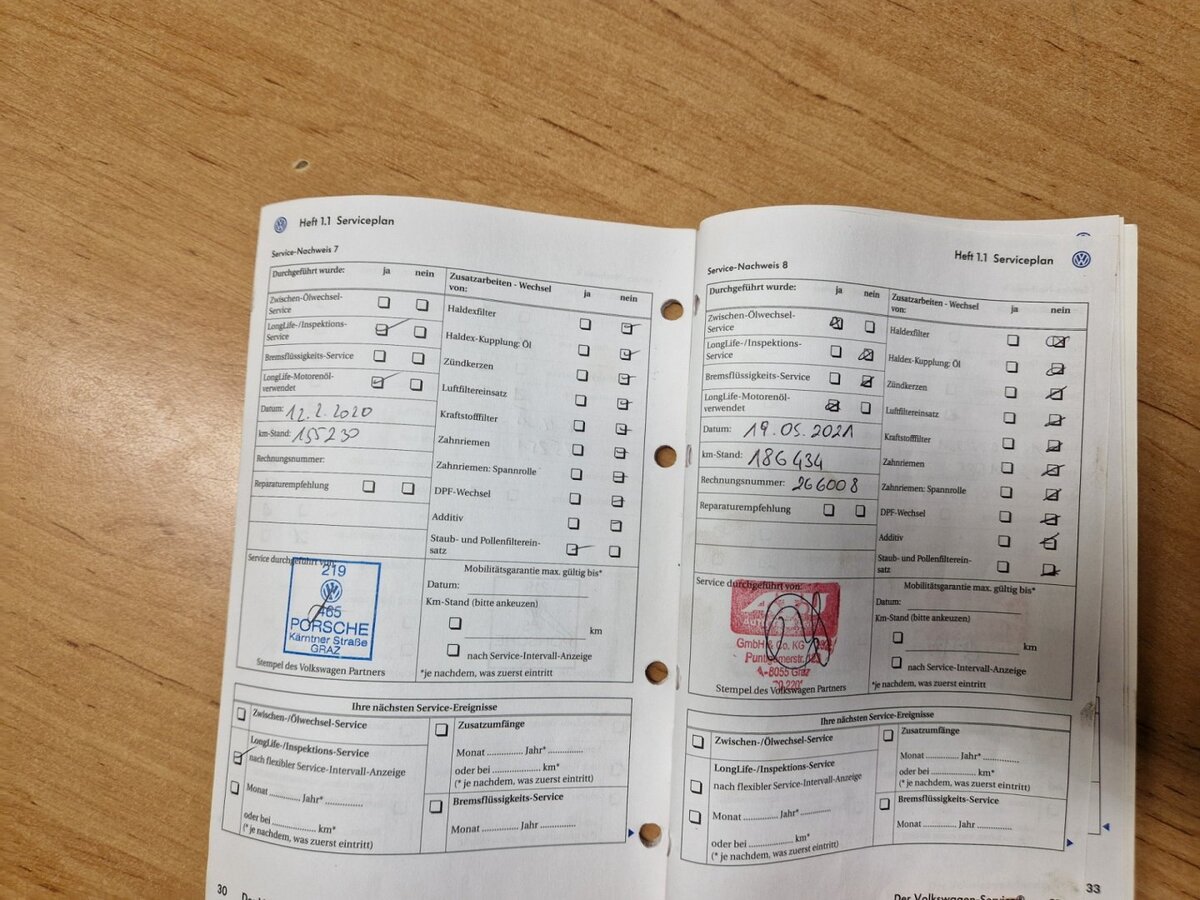 Heft 1.1 Serviceplan
Service-Nachweis 7
Durchgeführt wurde: ja nein
Zwischen-Ölwechsel-
Service
LongLife-/Inspektions-
Service
Bremsflüssigkeits-Service
LongLife-Motorenöl-
verwendet
Datum: 12.2.2020
km-Stand: 155230
Rechnungsnummer:
Reparaturempfehlung
Zusatzarbeiten - Wechsel
von: ja nein
Haldexfilter
Haldex-Kupplung: Öl
Zündkerzen
Luftfiltereinsatz
Kraftstofffilter
Zahnriemen
Zahnriemen: Spannrolle
DPF-Wechsel
Additiv
Staub- und Pollenfilterein-
satz
Service durchgeführt von:
219
465
PORSCHE
Kärntner Straße
GRAZ
Stempel des Volkswagen Partners
Mobilitätsgarantie max. gültig bis*
Datum:
Km-Stand (bitte ankeuzen)
km
nach Service-Intervall-Anzeige
*je nachdem, was zuerst eintritt
Ihre nächsten Service-Ereignisse
Zwischen-/Ölwechsel-Service
LongLife-/Inspektions-Service
nach flexibler Service-Intervall-Anzeige
Monat ............ Jahr* ..............
oder bei ................ km*
(* je nachdem, was zuerst eintritt)
Zusatzumfänge
Monat ............ Jahr* ............
oder bei .................... km*
(* je nachdem, was zuerst eintritt)
Bremsflüssigkeits-Service
Monat ............ Jahr ............
30
Heft 1.1 Serviceplan
Service-Nachweis 8
Durchgeführt wurde: ja nein
Zwischen-Ölwechsel-
Service
LongLife-/Inspektions-
Service
Bremsflüssigkeits-Service
LongLife-Motorenöl-
verwendet
Datum: 19.05.2021
km-Stand: 186434
Rechnungsnummer: 266008
Reparaturempfehlung
Zusatzarbeiten - Wechsel
von: ja nein
Haldexfilter
Haldex-Kupplung: Öl
Zündkerzen
Luftfiltereinsatz
Kraftstofffilter
Zahnriemen
Zahnriemen: Spannrolle
DPF-Wechsel
Additiv
Staub- und Pollenfilterein-
satz
Service durchgeführt von:
GmbH & Co. KG
8055 Graz
Stempel des Volkswagen Partners
Mobilitätsgarantie max. gültig bis*
Datum:
Km-Stand (bitte ankeuzen)
km
nach Service-Intervall-Anzeige
*je nachdem, was zuerst eintritt
Ihre nächsten Service-Ereignisse
Zwischen-/Ölwechsel-Service
LongLife-/Inspektions-Service
nach flexibler Service-Intervall-Anzeige
Monat ............ Jahr* ............
oder bei ................ km*
(* je nachdem, was zuerst eintritt)
Zusatzumfänge
Monat ............ Jahr* ............
oder bei .................... km*
(* je nachdem, was zuerst eintritt)
Bremsflüssigkeits-Service
Monat ............ Jahr ............
Der Volkswagen-Service®
33